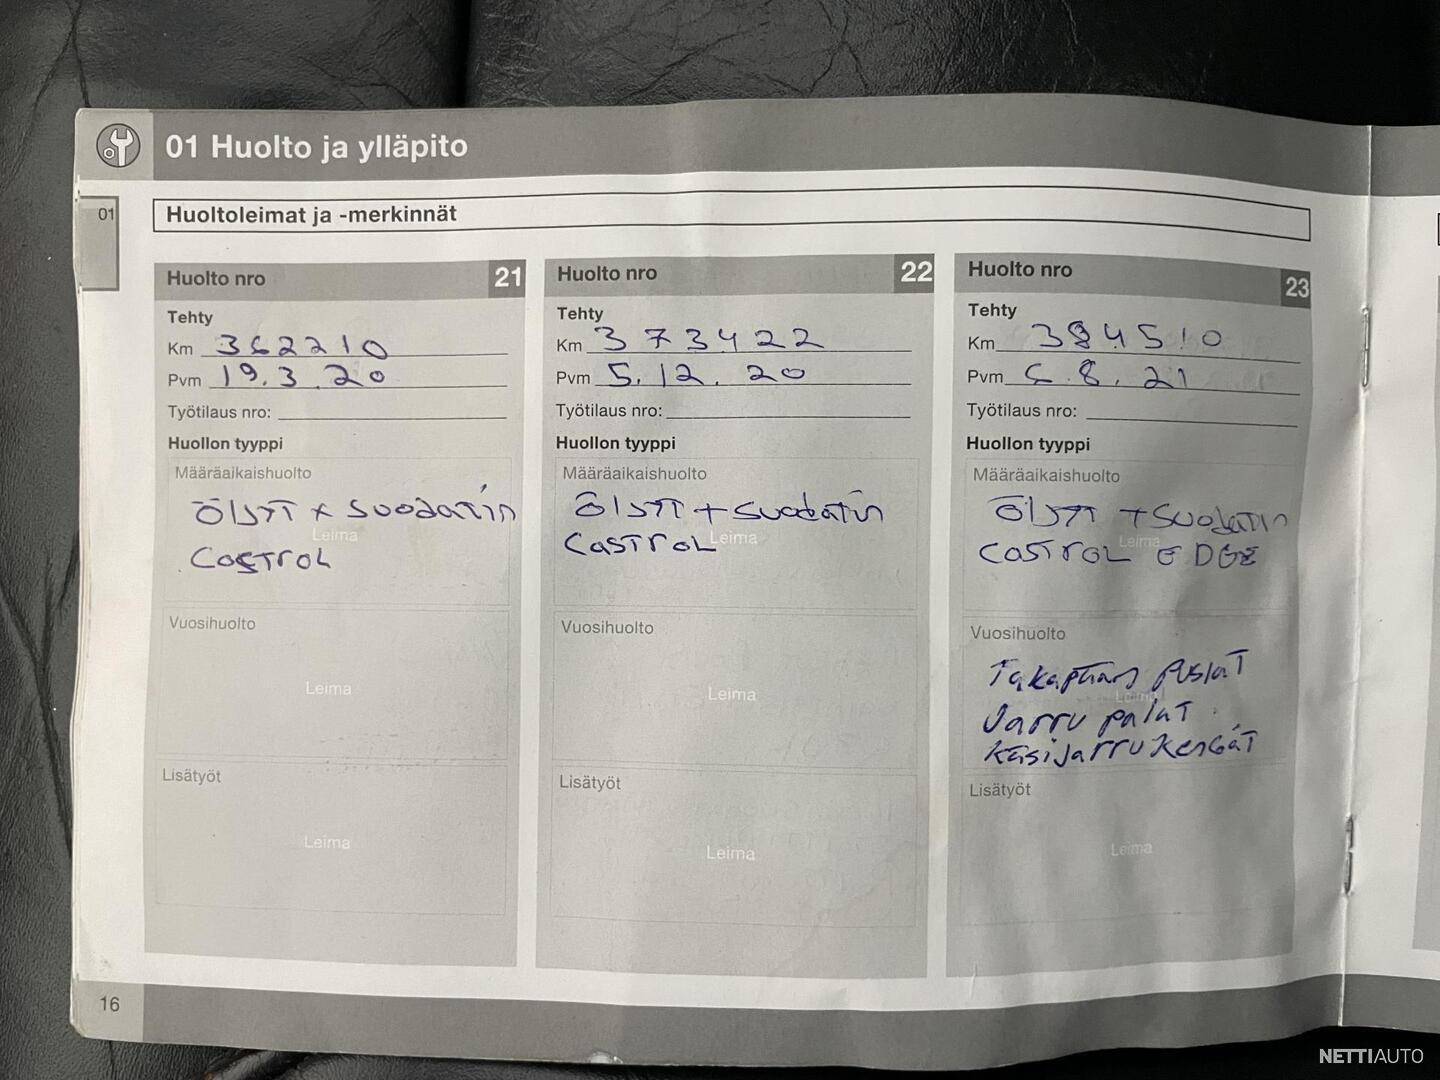 01 Huolto ja ylläpito
01
Huoltoleimat ja -merkinnät
Huolto nro 21
Tehty
Km 362210
Pvm 19.3.20
Työtilaus nro:
Huollon tyyppi
Määräaikaishuolto
ÖLJYT + SUODATIN
Leima
CASTROL
Vuosihuolto
Leima
Lisätyöt
Leima
Huolto nro 22
Tehty
Km 373422
Pvm 5.12.20
Työtilaus nro:
Huollon tyyppi
Määräaikaishuolto
ÖLJYT + SUODATIN
Leima
CASTROL
Vuosihuolto
Leima
Lisätyöt
Leima
Huolto nro 23
Tehty
Km 384510
Pvm 6.8.21
Työtilaus nro:
Huollon tyyppi
Määräaikaishuolto
ÖLJYT + SUODATIN
Leima
CASTROL EDGE
Vuosihuolto
Puslat
Leima
Jarru palat
Käsijarru kengät
Lisätyöt
Leima
16
NETTIAUTO